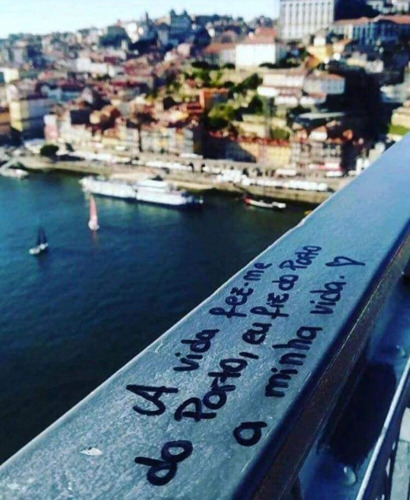 A vida fez-me
do Porto, eu fiz do Porto
a minha vida. ♡